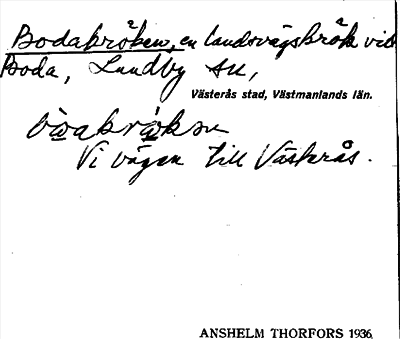 Bodakröken, en landsvägskrök vid
Boda, Lundby sn,
Västerås stad, Västmanlands län.
Vi vägen till Västerås.
ANSHELM THORFORS 1936.